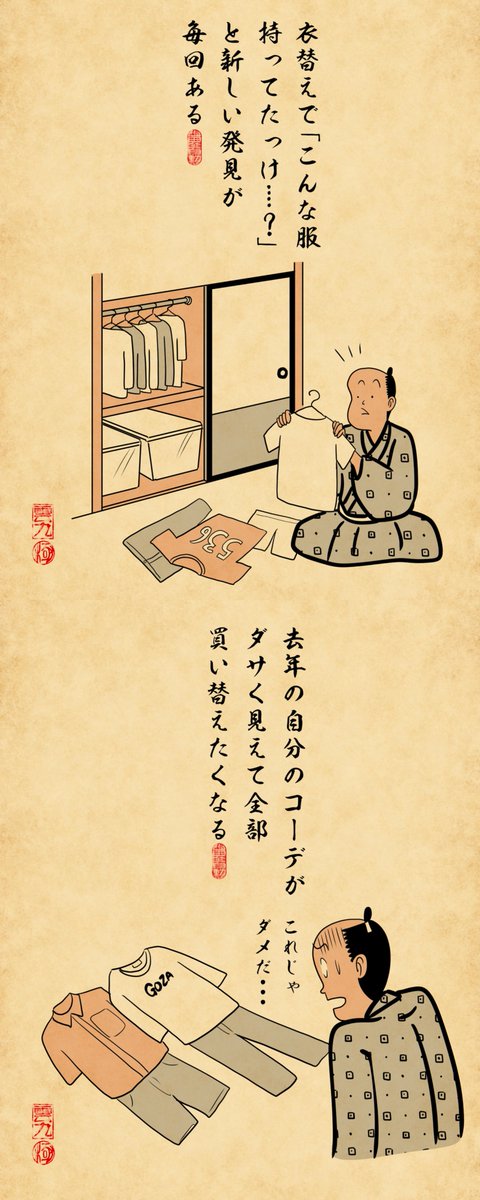 衣替えで「こんな服
持ってたっけ……？」
と新しい発見が
毎回ある
536
去年の自分のコーデが
ダサく見えて全部
買い替えたくなる
これじゃ
ダメだ…
GOZA